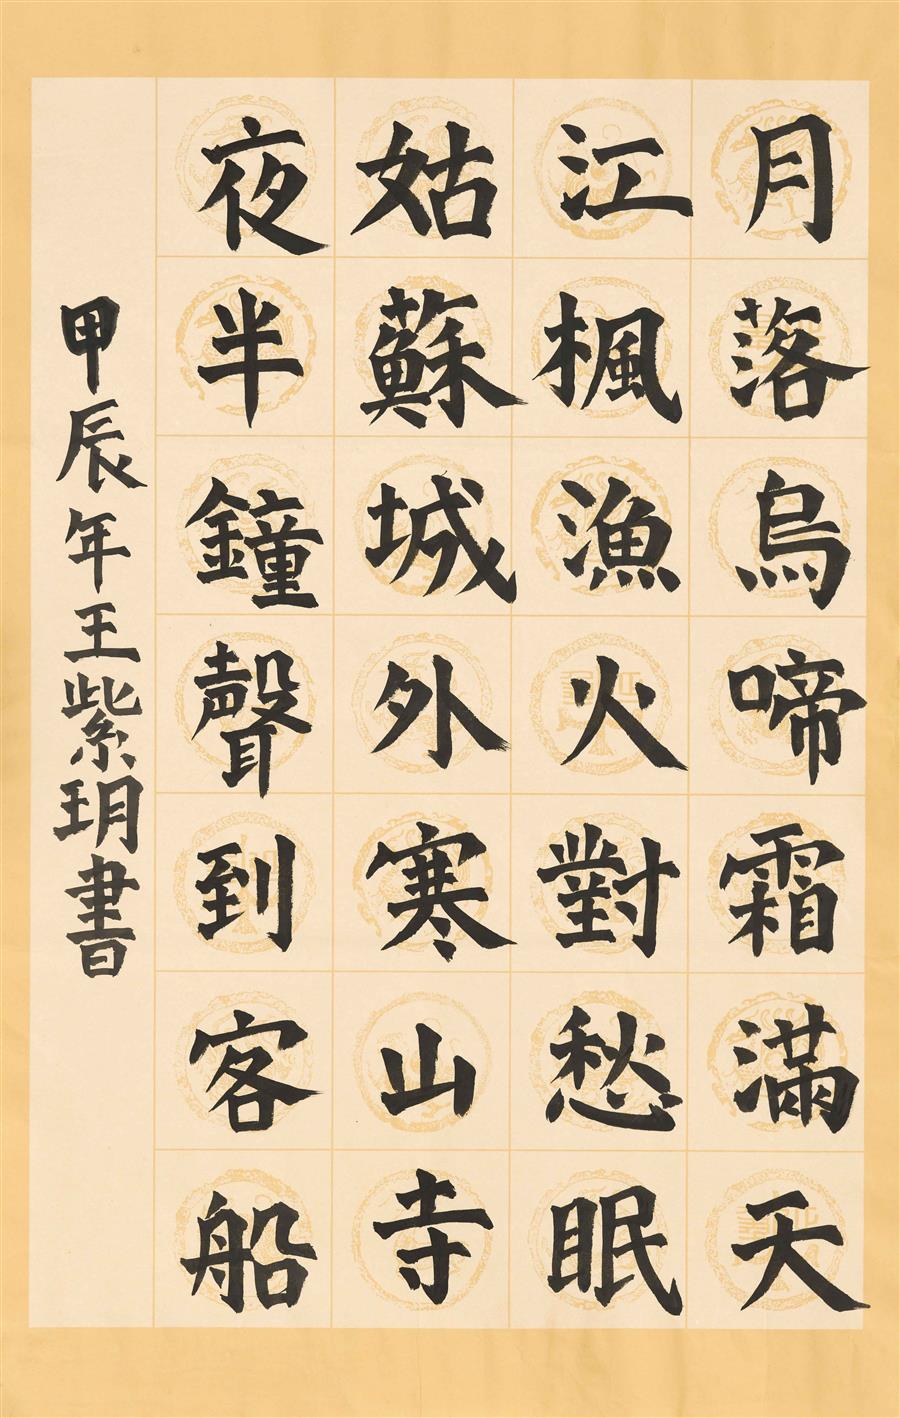 月落烏啼霜滿天
江楓漁火對愁眠
姑蘇城外寒山寺
夜半鐘聲到客船
甲辰年王紫玥書